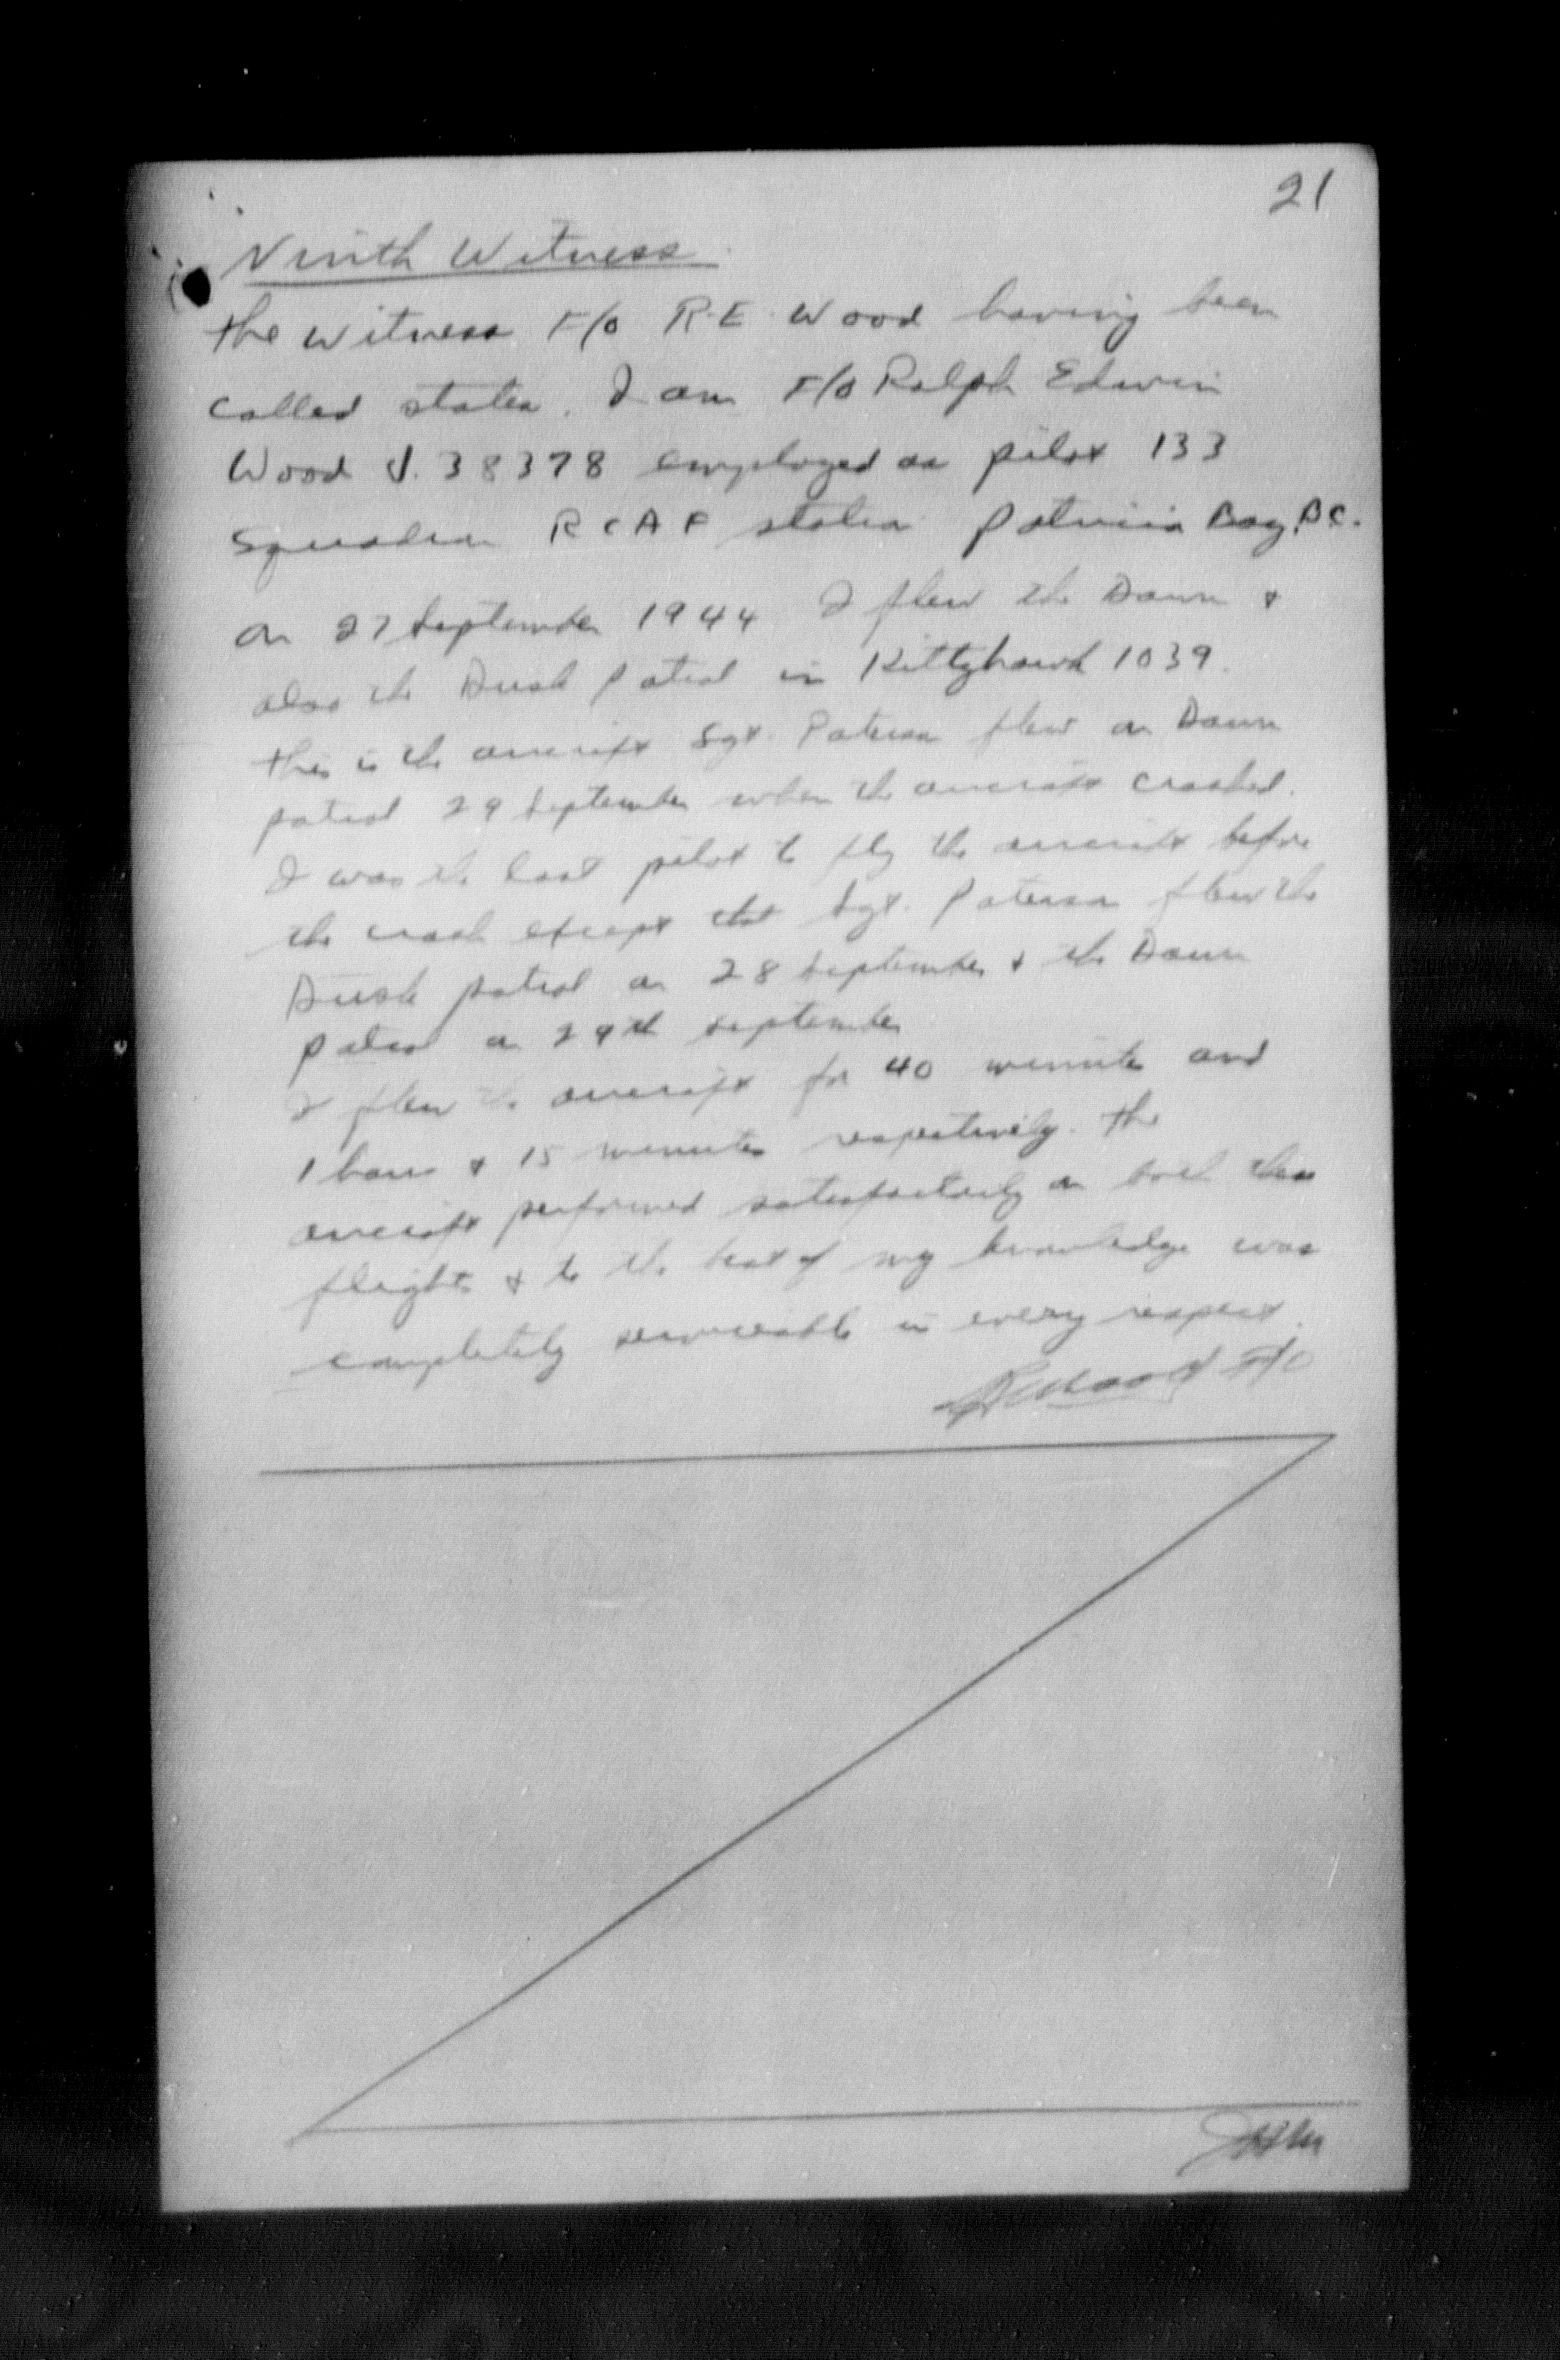 21
Ninth Witness
The Witness F/O R.E. Wood having been
called states. I am F/O Ralph Edwin
Wood J.38378 employed as pilot 133
Squadron RCAF station Patricia Bay, BC.
On 27 September 1944 I flew the Dawn &
also the Dusk Patrol in Kittyhawk 1039.
This is the aircraft Sgt. Paterson flew on Dawn
patrol 29 September when the aircraft crashed.
I was the last pilot to fly the aircraft before
the crash except that Sgt. Paterson flew the
Dusk patrol on 28 September & the Dawn
patrol on 29th September
I flew the aircraft for 40 minutes and
1 hour & 15 minutes respectively. The
aircraft performed satisfactorily on both these
flights & to the best of my knowledge was
completely serviceable in every respect.
REWood F/O